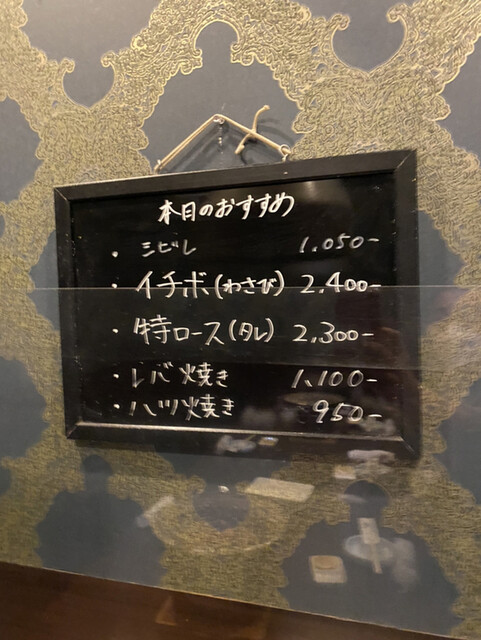 本日のおすすめ
・シビレ 1,050-
・イチボ(わさび) 2,400-
・特ロース(タレ) 2,300-
・レバ焼き 1,100-
・ハツ焼き 950-